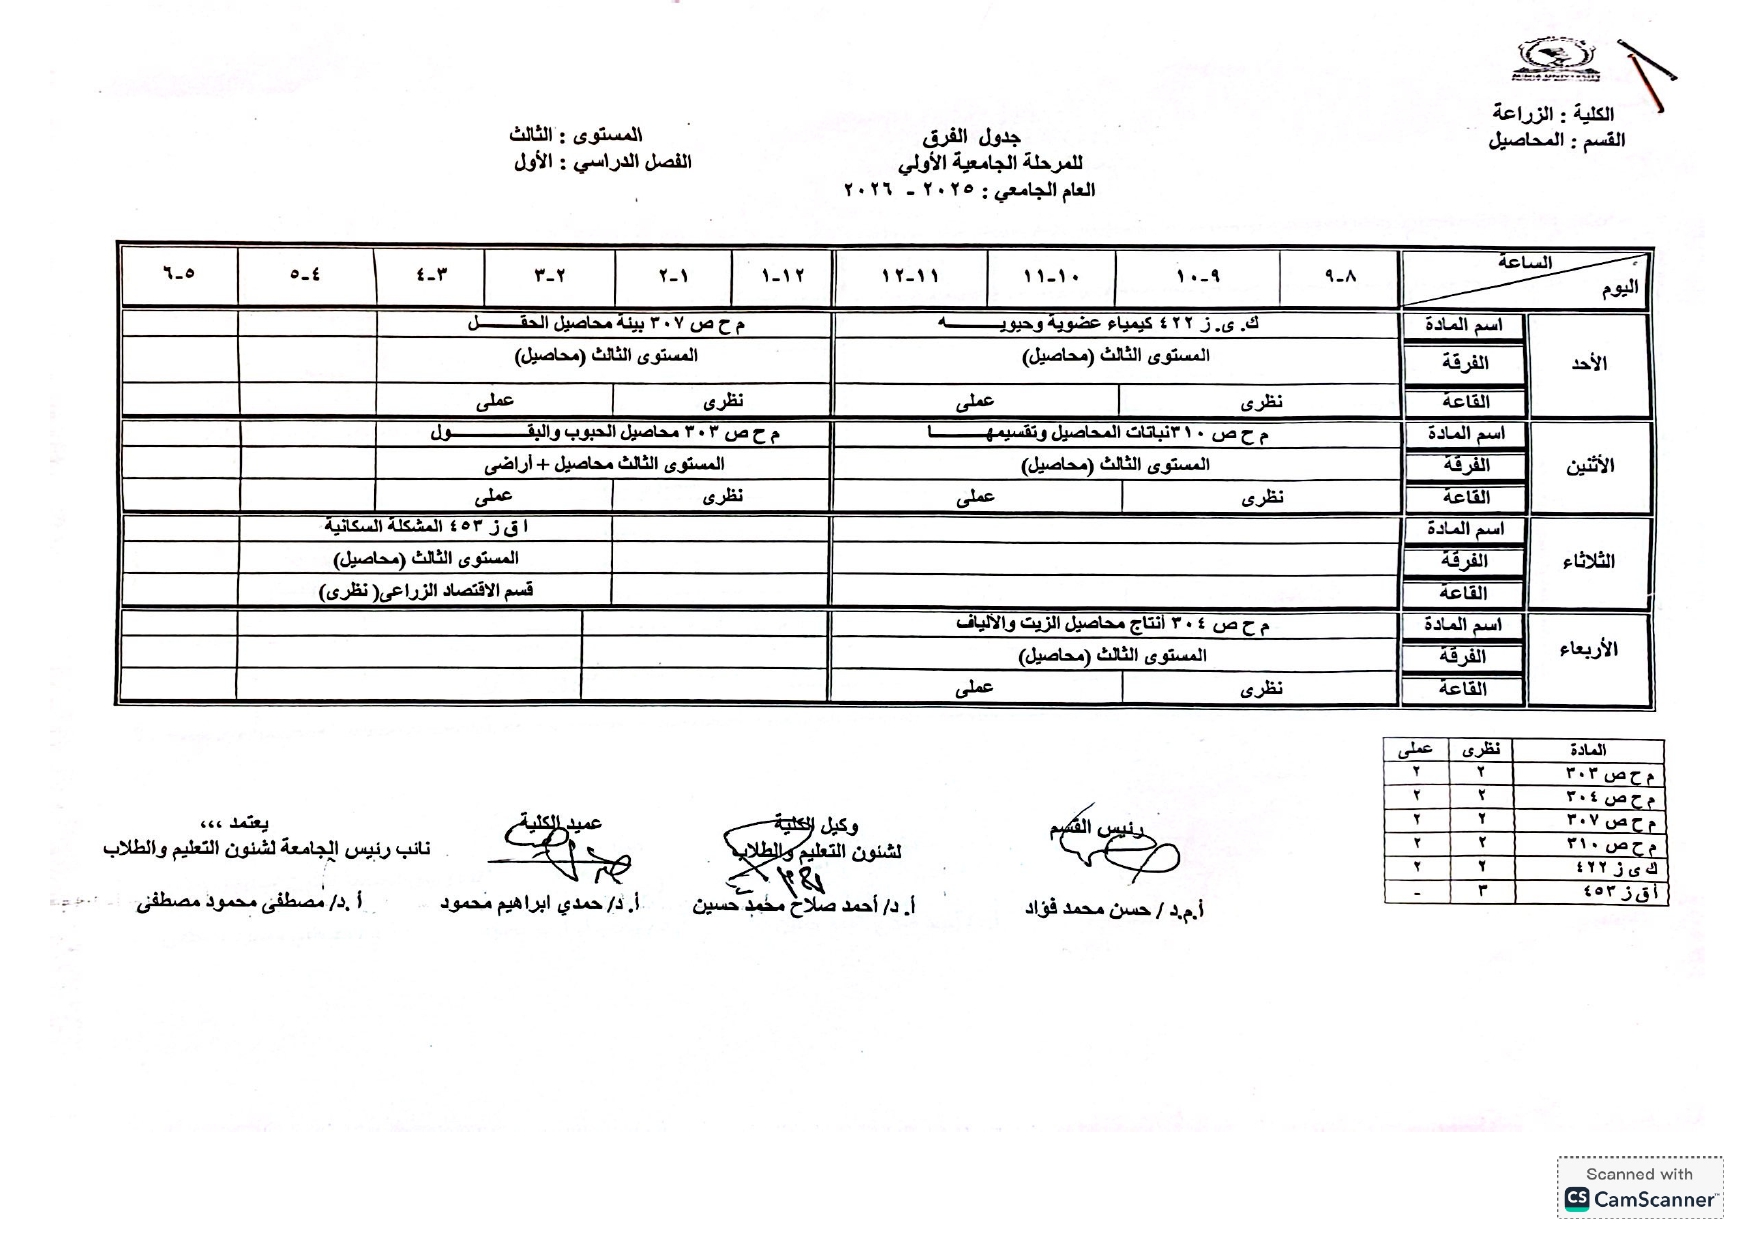 MINIA UNIVERSITY
الكلية : الزراعة
القسم : المحاصيل
جدول الفرق
للمرحلة الجامعية الأولي
العام الجامعي : ٢٠٢٥ - ٢٠٢٦
المستوى : الثالث
الفصل الدراسي : الأول
الساعة
اليوم
٨-٩ ٩-١٠ ١٠-١١ ١١-١٢ ١٢-١ ١-٢ ٢-٣ ٣-٤ ٤-٥ ٥-٦
الأحد
اسم المادة ك. ى. ز ٤٢٢ كيمياء عضوية وحيويـــــــه م ح ص ٣٠٧ بيئة محاصيل الحقــــل
الفرقة المستوى الثالث (محاصيل) المستوى الثالث (محاصيل)
القاعة نظرى عملى نظرى عملى
الأثنين
اسم المادة م ح ص ٣١٠نباتات المحاصيل وتقسيمهـــــــا م ح ص ٣٠٣ محاصيل الحبوب والبقـــــــول
الفرقة المستوى الثالث (محاصيل) المستوى الثالث محاصيل + أراضى
القاعة نظرى عملى نظرى عملى
الثلاثاء
اسم المادة ا ق ز ٤٥٣ المشكلة السكانية
الفرقة المستوى الثالث (محاصيل)
القاعة قسم الاقتصاد الزراعى( نظرى)
الأربعاء
اسم المادة م ح ص ٣٠٤ أنتاج محاصيل الزيت والألياف
الفرقة المستوى الثالث (محاصيل)
القاعة نظرى عملى
المادة نظرى عملى
م ح ص ٣٠٣ ٢ ٢
م ح ص ٣٠٤ ٢ ٢
م ح ص ٣٠٧ ٢ ٢
م ح ص ٣١٠ ٢ ٢
ك ى ز ٤٢٢ ٢ ٢
أ ق ز ٤٥٣ ٣ -
رئيس القسم
أ.م.د / حسن محمد فؤاد
وكيل الكلية
لشئون التعليم والطلاب
أ. د/ أحمد صلاح محمد حسين
عميد الكلية
أ. د/ حمدي ابراهيم محمود
يعتمد ،،،
نائب رئيس الجامعة لشئون التعليم والطلاب
أ .د/ مصطفى محمود مصطفى
Scanned with
CS CamScanner